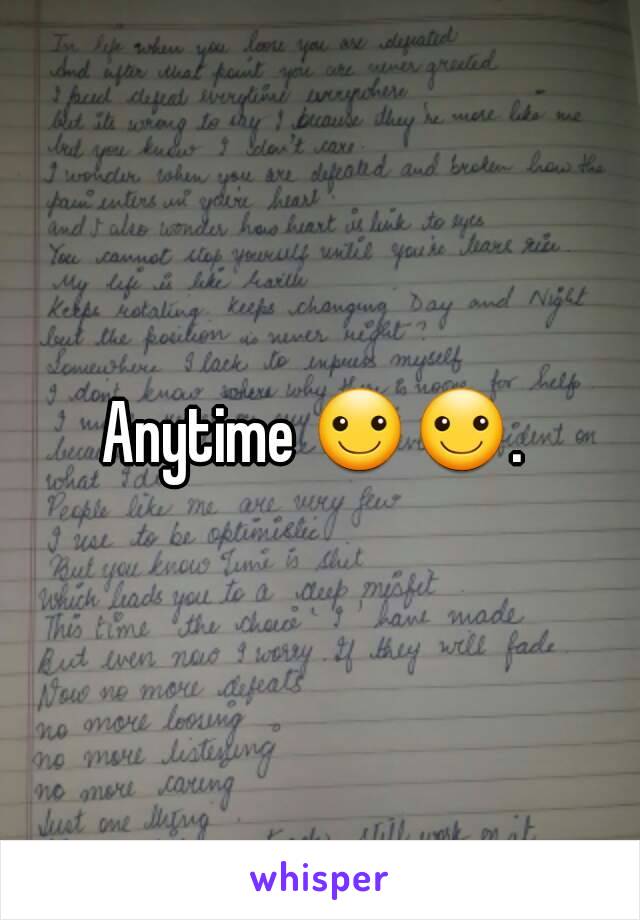 In life when you loose you are defeated
And after that point you are never greeted
I faced defeat everytime everywhere
but its wrong to say I because they're more like me
but you know I don't care.
I wonder when you are defeated and broken how the
pain enters in you're heart.
and I also wonder how heart is link to eyes
You cannot stop yourself until you're tears rise
My life is like Earth
Keeps rotating. Keeps changing Day and Night
but the position is never right?
Somewhere I lack to impress myself
I don't know why there is noone for help
I my
Anytime 🙂🙂.
because on
what I do
People like me are very few
I use to be optimistic
But you know Time is shit
Which leads you to a deep misfit
This time the choice 'I' have made
But even now I worry. If they will fade
Now no more defeats
no more loosing
no more listening
no more caring
Just one thing
still work on it
whisper